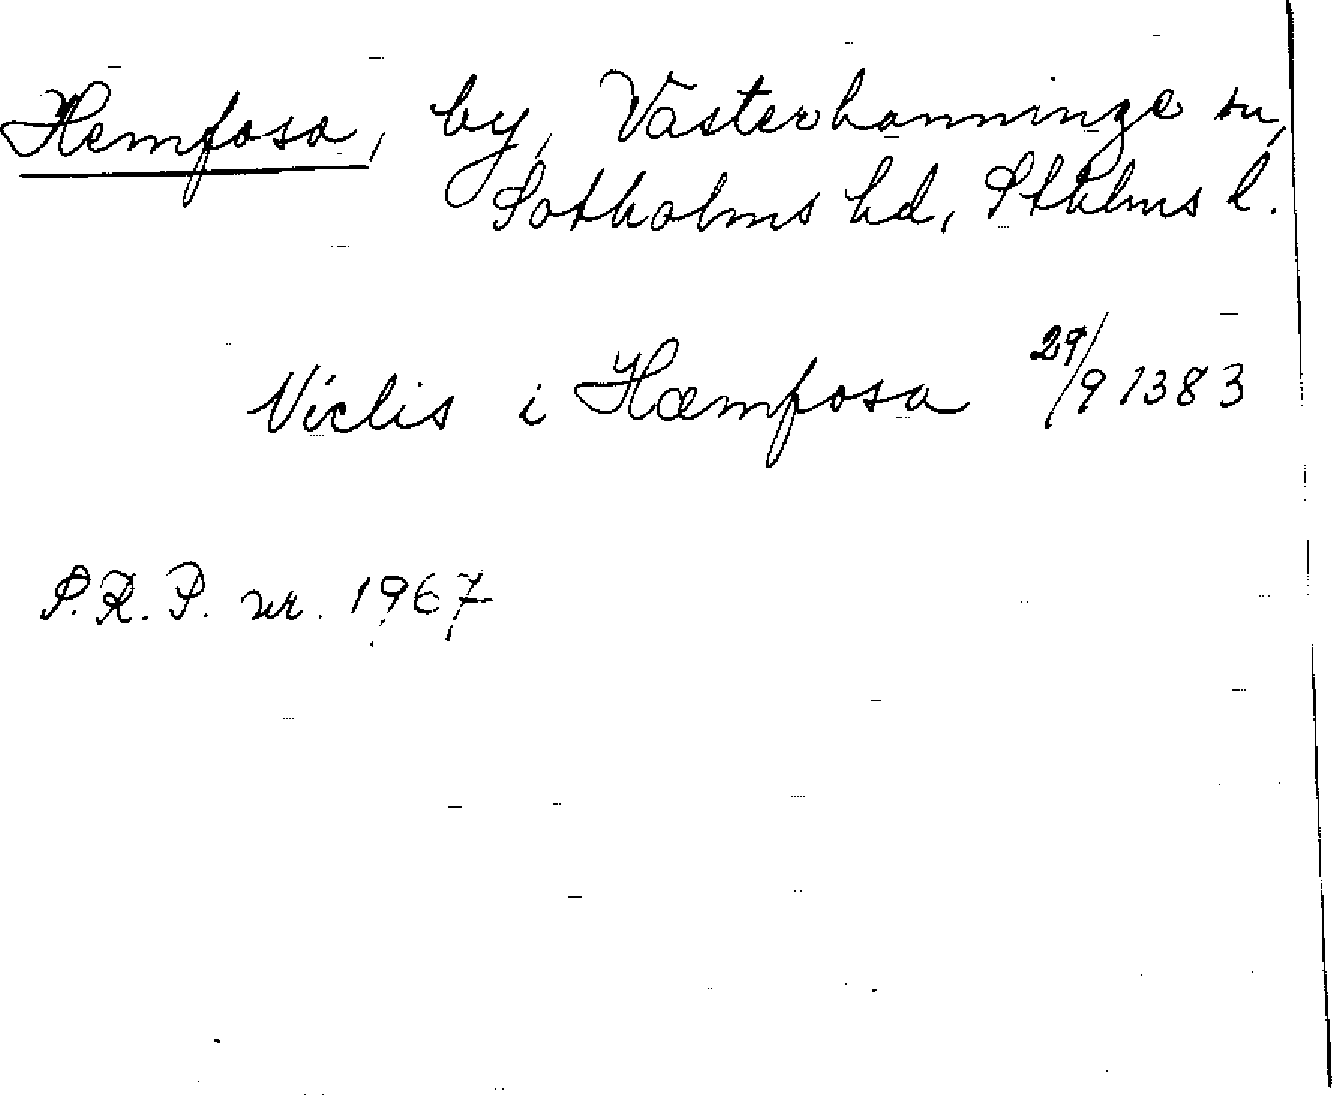 Hemfosa, by, Västerhanninge sn,
Sotholms hd, Sthlms l.
Niclis i Hæmfosa 29/9 1383
S.R.P. nr. 1967